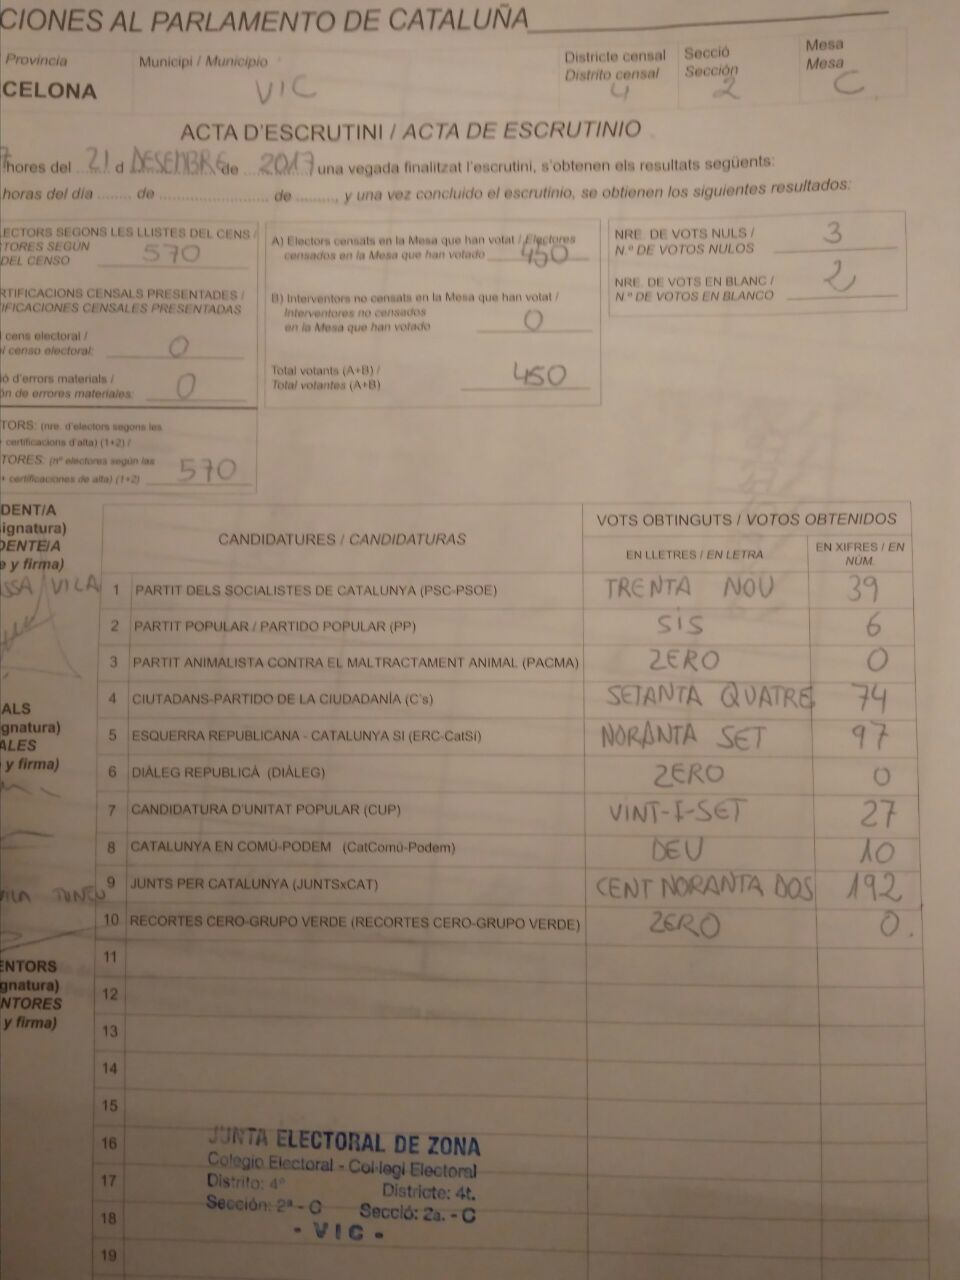 CIONES AL PARLAMENTO DE CATALUÑA
Provincia
CELONA
Municipi / Municipio
VIC
Districte censal
Distrito censal
4
Secció
Sección
2
Mesa
Mesa
C
ACTA D'ESCRUTINI / ACTA DE ESCRUTINIO
hores del 21 d DESEMBRE de 2017 una vegada finalitzat l'escrutini, s'obtenen els resultats següents:
horas del día ........ de ........................ de ........., y una vez concluido el escrutinio, se obtienen los siguientes resultados:
ECTORS SEGONS LES LLISTES DEL CENS /
TORES SEGÚN
DEL CENSO 570
RTIFICACIONS CENSALS PRESENTADES /
IFICACIONES CENSALES PRESENTADAS
l cens electoral /
l censo electoral: 0
ó d'errors materials /
ón de errores materiales: 0
TORS: (nre. d'electors segons les
+ certificacions d'alta) (1+2) /
TORES: (nº electores según las
+ certificaciones de alta) (1+2) 570
A) Electors censats en la Mesa que han votat / Electores
censados en la Mesa que han votado 450
B) Interventors no censats en la Mesa que han votat /
Interventores no censados
en la Mesa que han votado 0
Total votants (A+B) /
Total votantes (A+B) 450
NRE. DE VOTS NULS /
N.º DE VOTOS NULOS 3
NRE. DE VOTS EN BLANC /
N.º DE VOTOS EN BLANCO 2
DENT/A
ignatura)
DENTE/A
e y firma)
SSA VILA
ALS
gnatura)
ALES
y firma)
VILA
ENTORS
gnatura)
NTORES
y firma)
CANDIDATURES / CANDIDATURAS
VOTS OBTINGUTS / VOTOS OBTENIDOS
EN LLETRES / EN LETRA
EN XIFRES / EN NÚM.
1 PARTIT DELS SOCIALISTES DE CATALUNYA (PSC-PSOE) TRENTA NOU 39
2 PARTIT POPULAR / PARTIDO POPULAR (PP) SIS 6
3 PARTIT ANIMALISTA CONTRA EL MALTRACTAMENT ANIMAL (PACMA) ZERO 0
4 CIUTADANS-PARTIDO DE LA CIUDADANÍA (C's) SETANTA QUATRE 74
5 ESQUERRA REPUBLICANA - CATALUNYA SI (ERC-CatSí) NORANTA SET 97
6 DIÀLEG REPUBLICÀ (DIÀLEG) ZERO 0
7 CANDIDATURA D'UNITAT POPULAR (CUP) VINT-I-SET 27
8 CATALUNYA EN COMÚ-PODEM (CatComú-Podem) DEU 10
9 JUNTS PER CATALUNYA (JUNTSxCAT) CENT NORANTA DOS 192
10 RECORTES CERO-GRUPO VERDE (RECORTES CERO-GRUPO VERDE) ZERO 0.
11
12
13
14
15
16
17
18
19
JUNTA ELECTORAL DE ZONA
Colegio Electoral - Col·legi Electoral
Distrito: 4º Districte: 4t.
Sección: 2ª - C Secció: 2a. - C
- VIC -